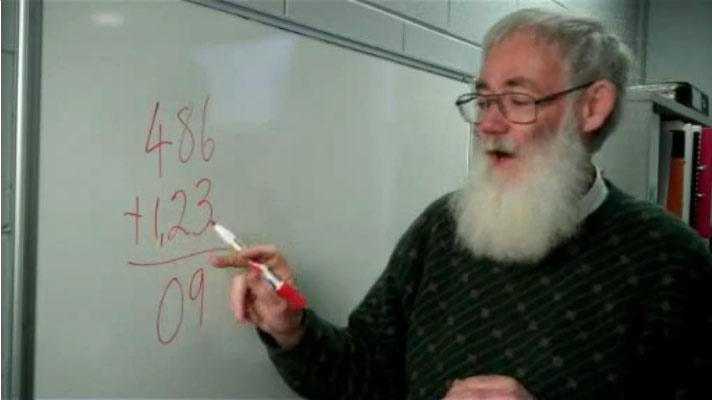 486
+1,23
09